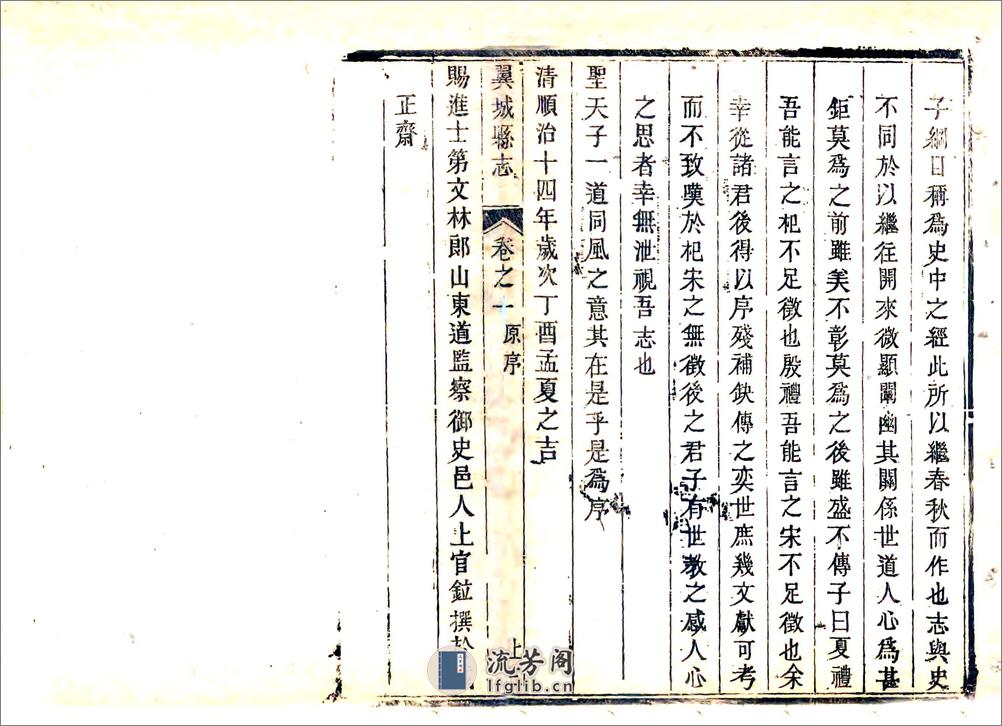 子綱目稱爲史中之經此所以繼春秋而作也志與史
不同於以繼往開來微顯闡幽其關係世道人心爲甚
鉅莫爲之前雖美不彰莫爲之後雖盛不傳子曰夏禮
吾能言之杞不足徵也殷禮吾能言之宋不足徵也余
幸從諸君後得以序殘補缺傳之奕世庶幾文獻可考
而不致嘆於杞宋之無徵後之君子有世教之感人心
之思者幸無泄視吾志也
聖天子一道同風之意其在是乎是爲序
清順治十四年歲次丁酉孟夏之吉
翼城縣志 卷之一 原序 上
賜進士第文林郎山東道監察御史邑人上官鉝撰於
正齋
流芳阁
lfglib.cn